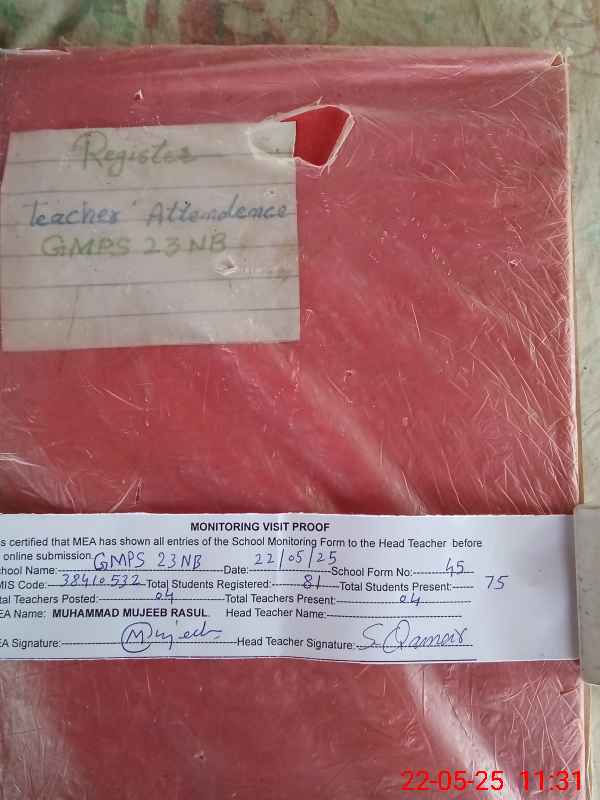 Register
Teacher Attendence
GMPS 23NB
MONITORING VISIT PROOF
s certified that MEA has shown all entries of the School Monitoring Form to the Head Teacher before
online submission.
chool Name: GMPS 23NB Date: 22/05/25 School Form No: 45
MIS Code: 38410532 Total Students Registered: 81 Total Students Present: 75
tal Teachers Posted: 04 Total Teachers Present: 04
EA Name: MUHAMMAD MUJEEB RASUL Head Teacher Name:
EA Signature: Mujeeb Head Teacher Signature:
22-05-25 11:31